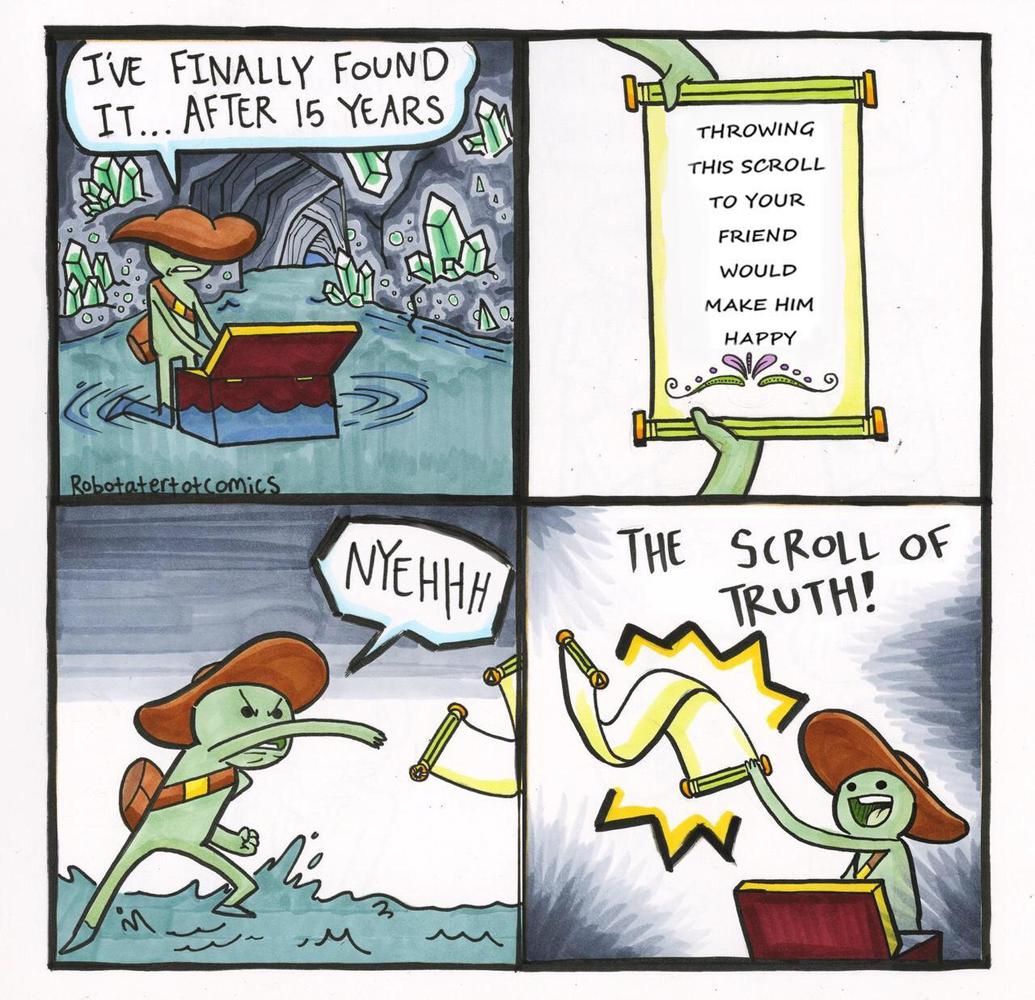 I'VE FINALLY FOUND
IT... AFTER 15 YEARS
Robotatertotcomics
THROWING
THIS SCROLL
TO YOUR
FRIEND
WOULD
MAKE HIM
HAPPY
NYEHHH
THE SCROLL OF
TRUTH!